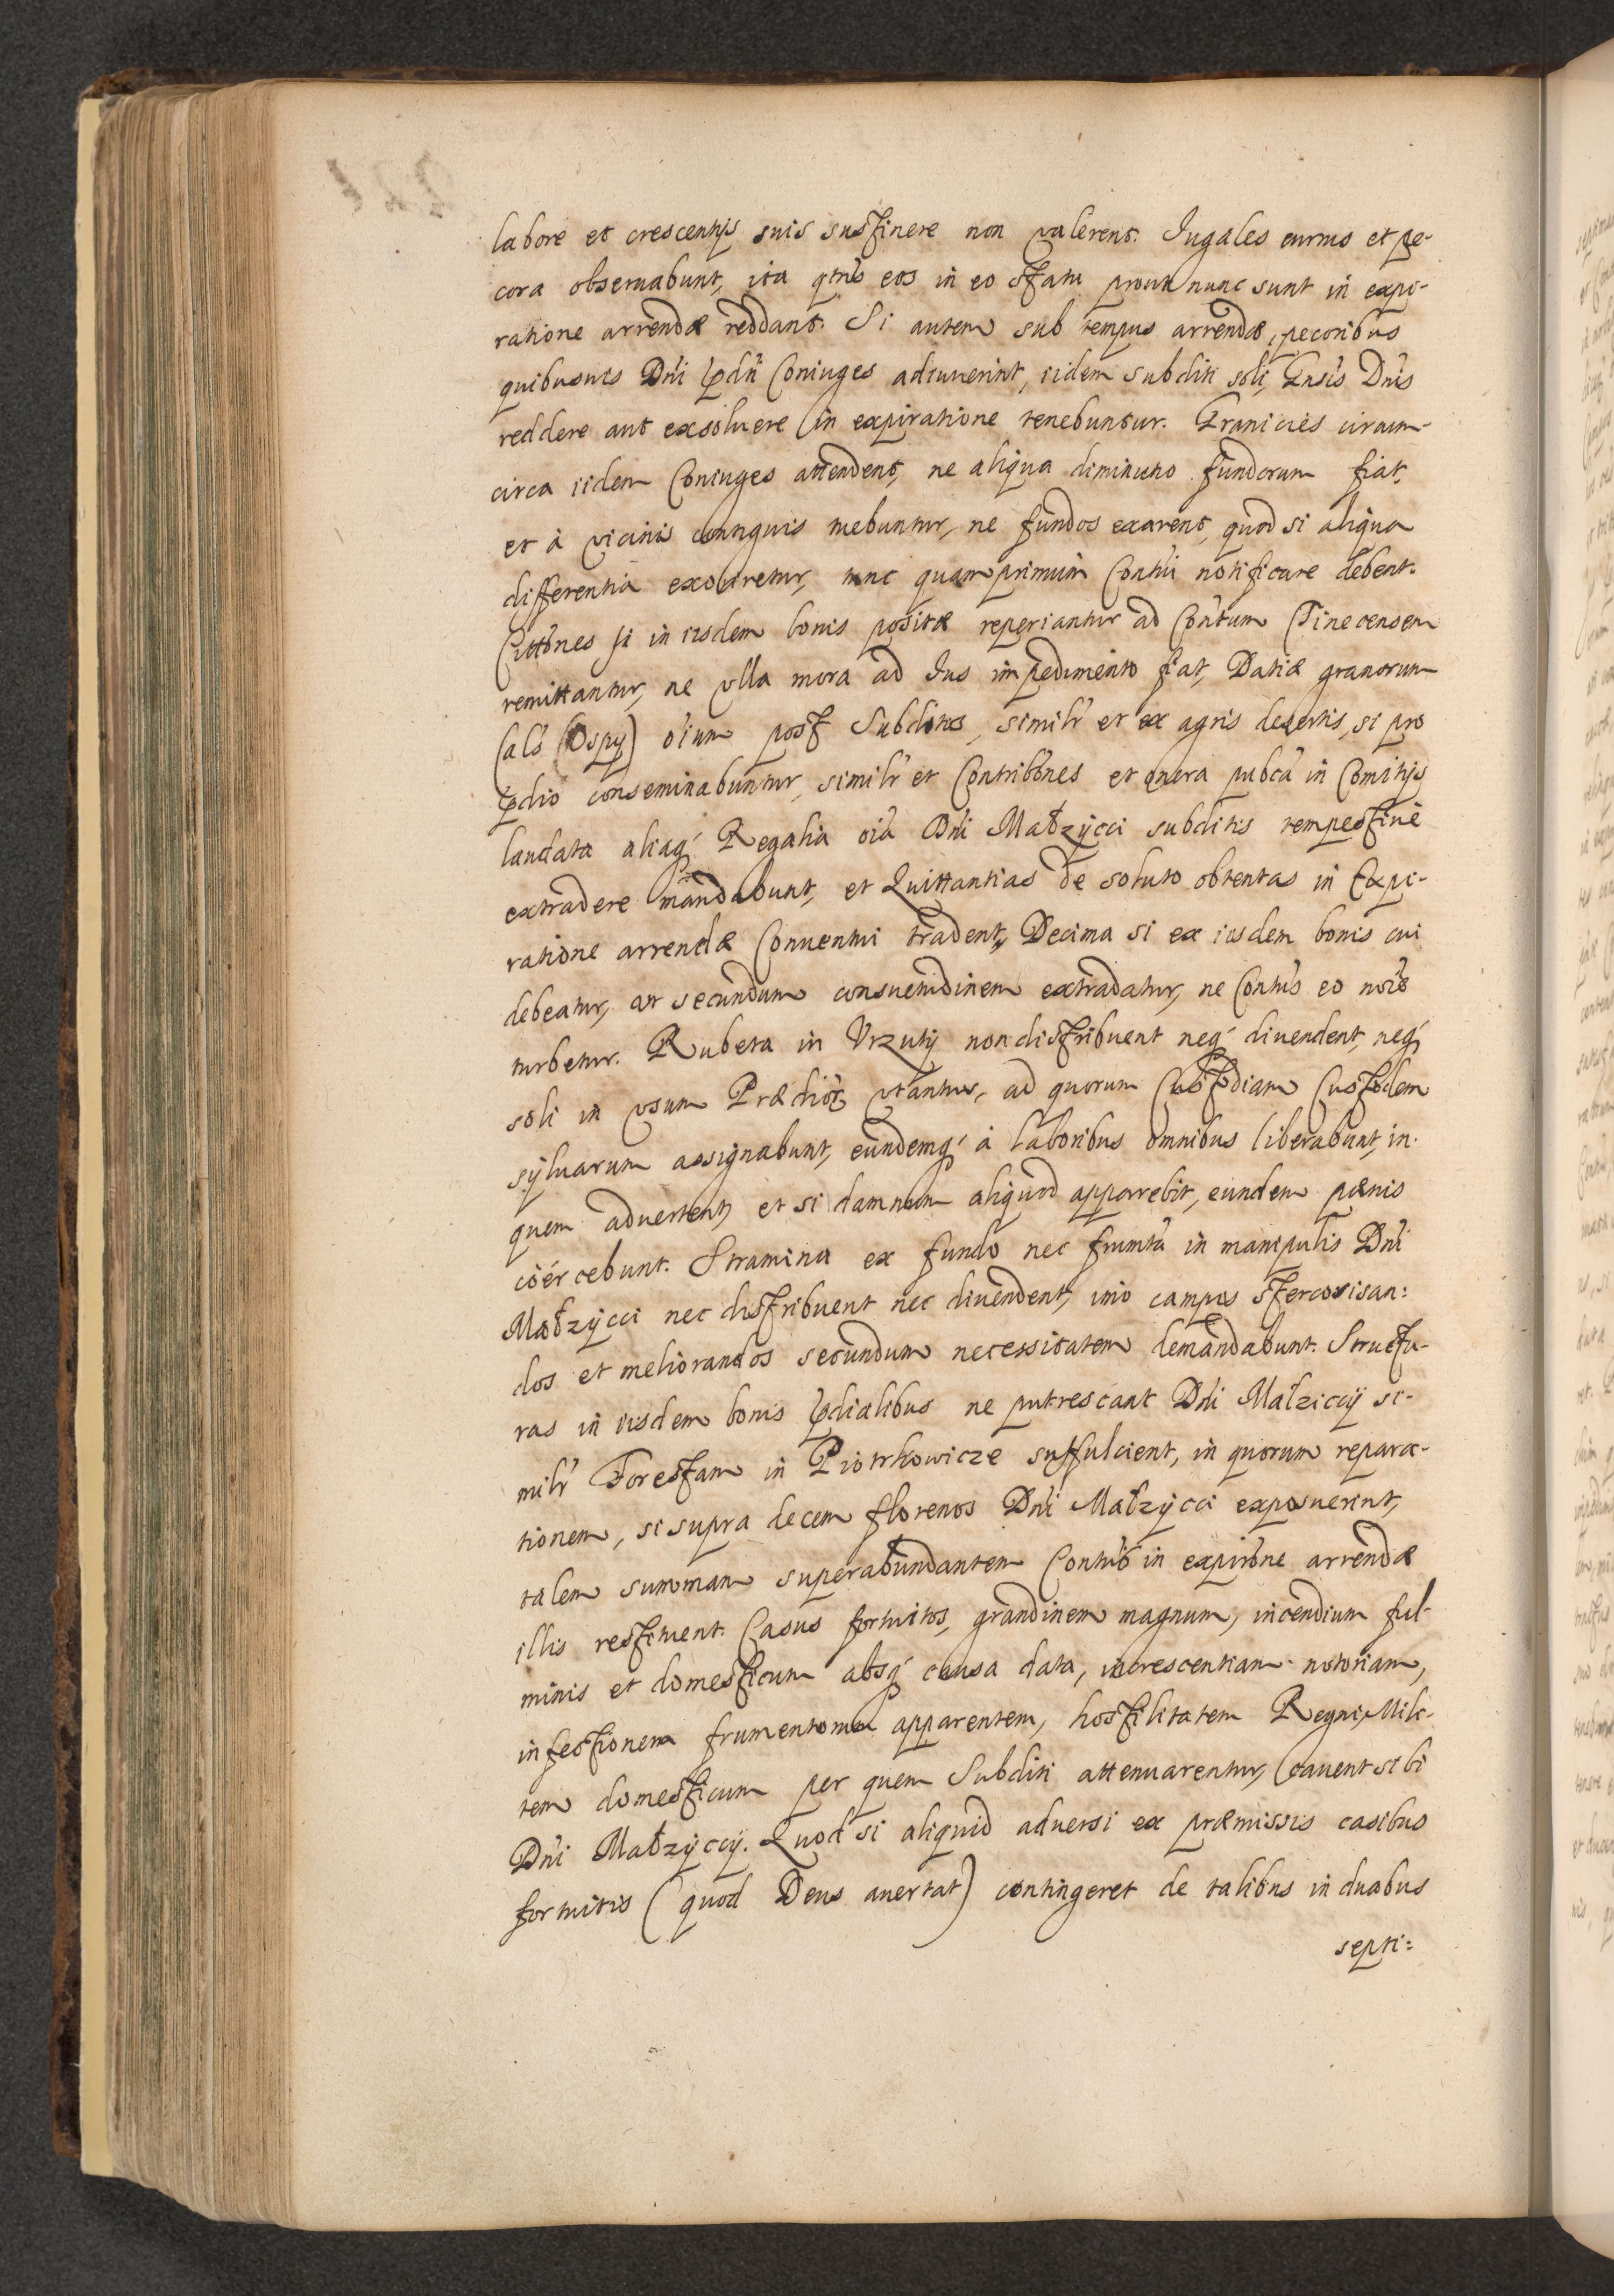 labore et crescentijs suis sustinere non valerent. Jugales currus et pe-
cora obseruabunt, ita qtns eos in eo statu prout nunc sunt in expi-
ratione arrendæ reddant. Si autem sub tempus arrendæ, pecoribus
quibusuis Dni pdti Coniuges adiuuerint, iidem subditi soli, Dnis
reddere aut exsoluere in expiratione tenebuntur. Granicies circum-
circa iidem Coniuges attendent, ne aliqua diminutio fundorum fiat,
et à vicinis contiguis tuebuntur, ne fundos exarent, quod si aliqua
differentia exoriretur, tunc quamprimum Contui notificare debent.
Citt͠ones si in iisdem bonis positæ reperiantur ad Contum Tinecensem
remittantur, ne vlla mora ad Jus impedimento fiat, Datiæ granorum
(als Ospy) oium post Subditos, similr et ex agris desertis, si pro
pdio conseminabuntur, similr et Contribones et onera pubca in Comitijs
laudata aliaq́ Regalia oia Dni Małzÿcci subditis tempestiuè
extradere mandabunt, et Quittantias de soluto obtentas in Expi-
ratione arrendæ Conuentui tradent, Decima si ex iisdem bonis cui
debeatur, ut secundum consuetudinem extradatur, ne Contus eo noie
turbetur. Rubeta in Vrzutÿ non distribuent neq́ diuendent, neq́
soli in vsum Prædior̃ vtantur, ad quorum Custodiam Custodem
sÿluarum assignabunt, eundemq́ à laboribus omnibus liberabunt, in
quem aduertent, et si damnum aliquod apparebit, eundem pænis
coércebunt. Stramina ex fundo nec frumta in manipulis Dni
Małzÿcci nec distribuent nec diuendent, imo campos stercorisan:
dos et meliorandos secundum necessitatem demandabunt. Structu-
ras in iisdem bonis pdialibus ne putrescant Dni Małziccÿ si-
milr Forestam in Piotrkowicze suffulcient, in quorum repara-
tionem, si supra decem florenos Dni Małzÿcci exposuerint,
talem summam superabundantem Contus in expirone arrendæ
illis restituent. Casus fortuitos, grandinem magnum, incendium ful-
minis et domesticum absq́ causa data, increscentiam notoriam,
infectionem frumentorum apparentem, hostilitatem Regni, Mili-
tem domesticum per quem Subditi attenuarentur, Cauent sibi
Dni Małzÿccÿ. Quod si aliquid aduersi ex præmissis casibus
fortuitis (quod Deus auertat) contingeret de talibus in duabus
septi: